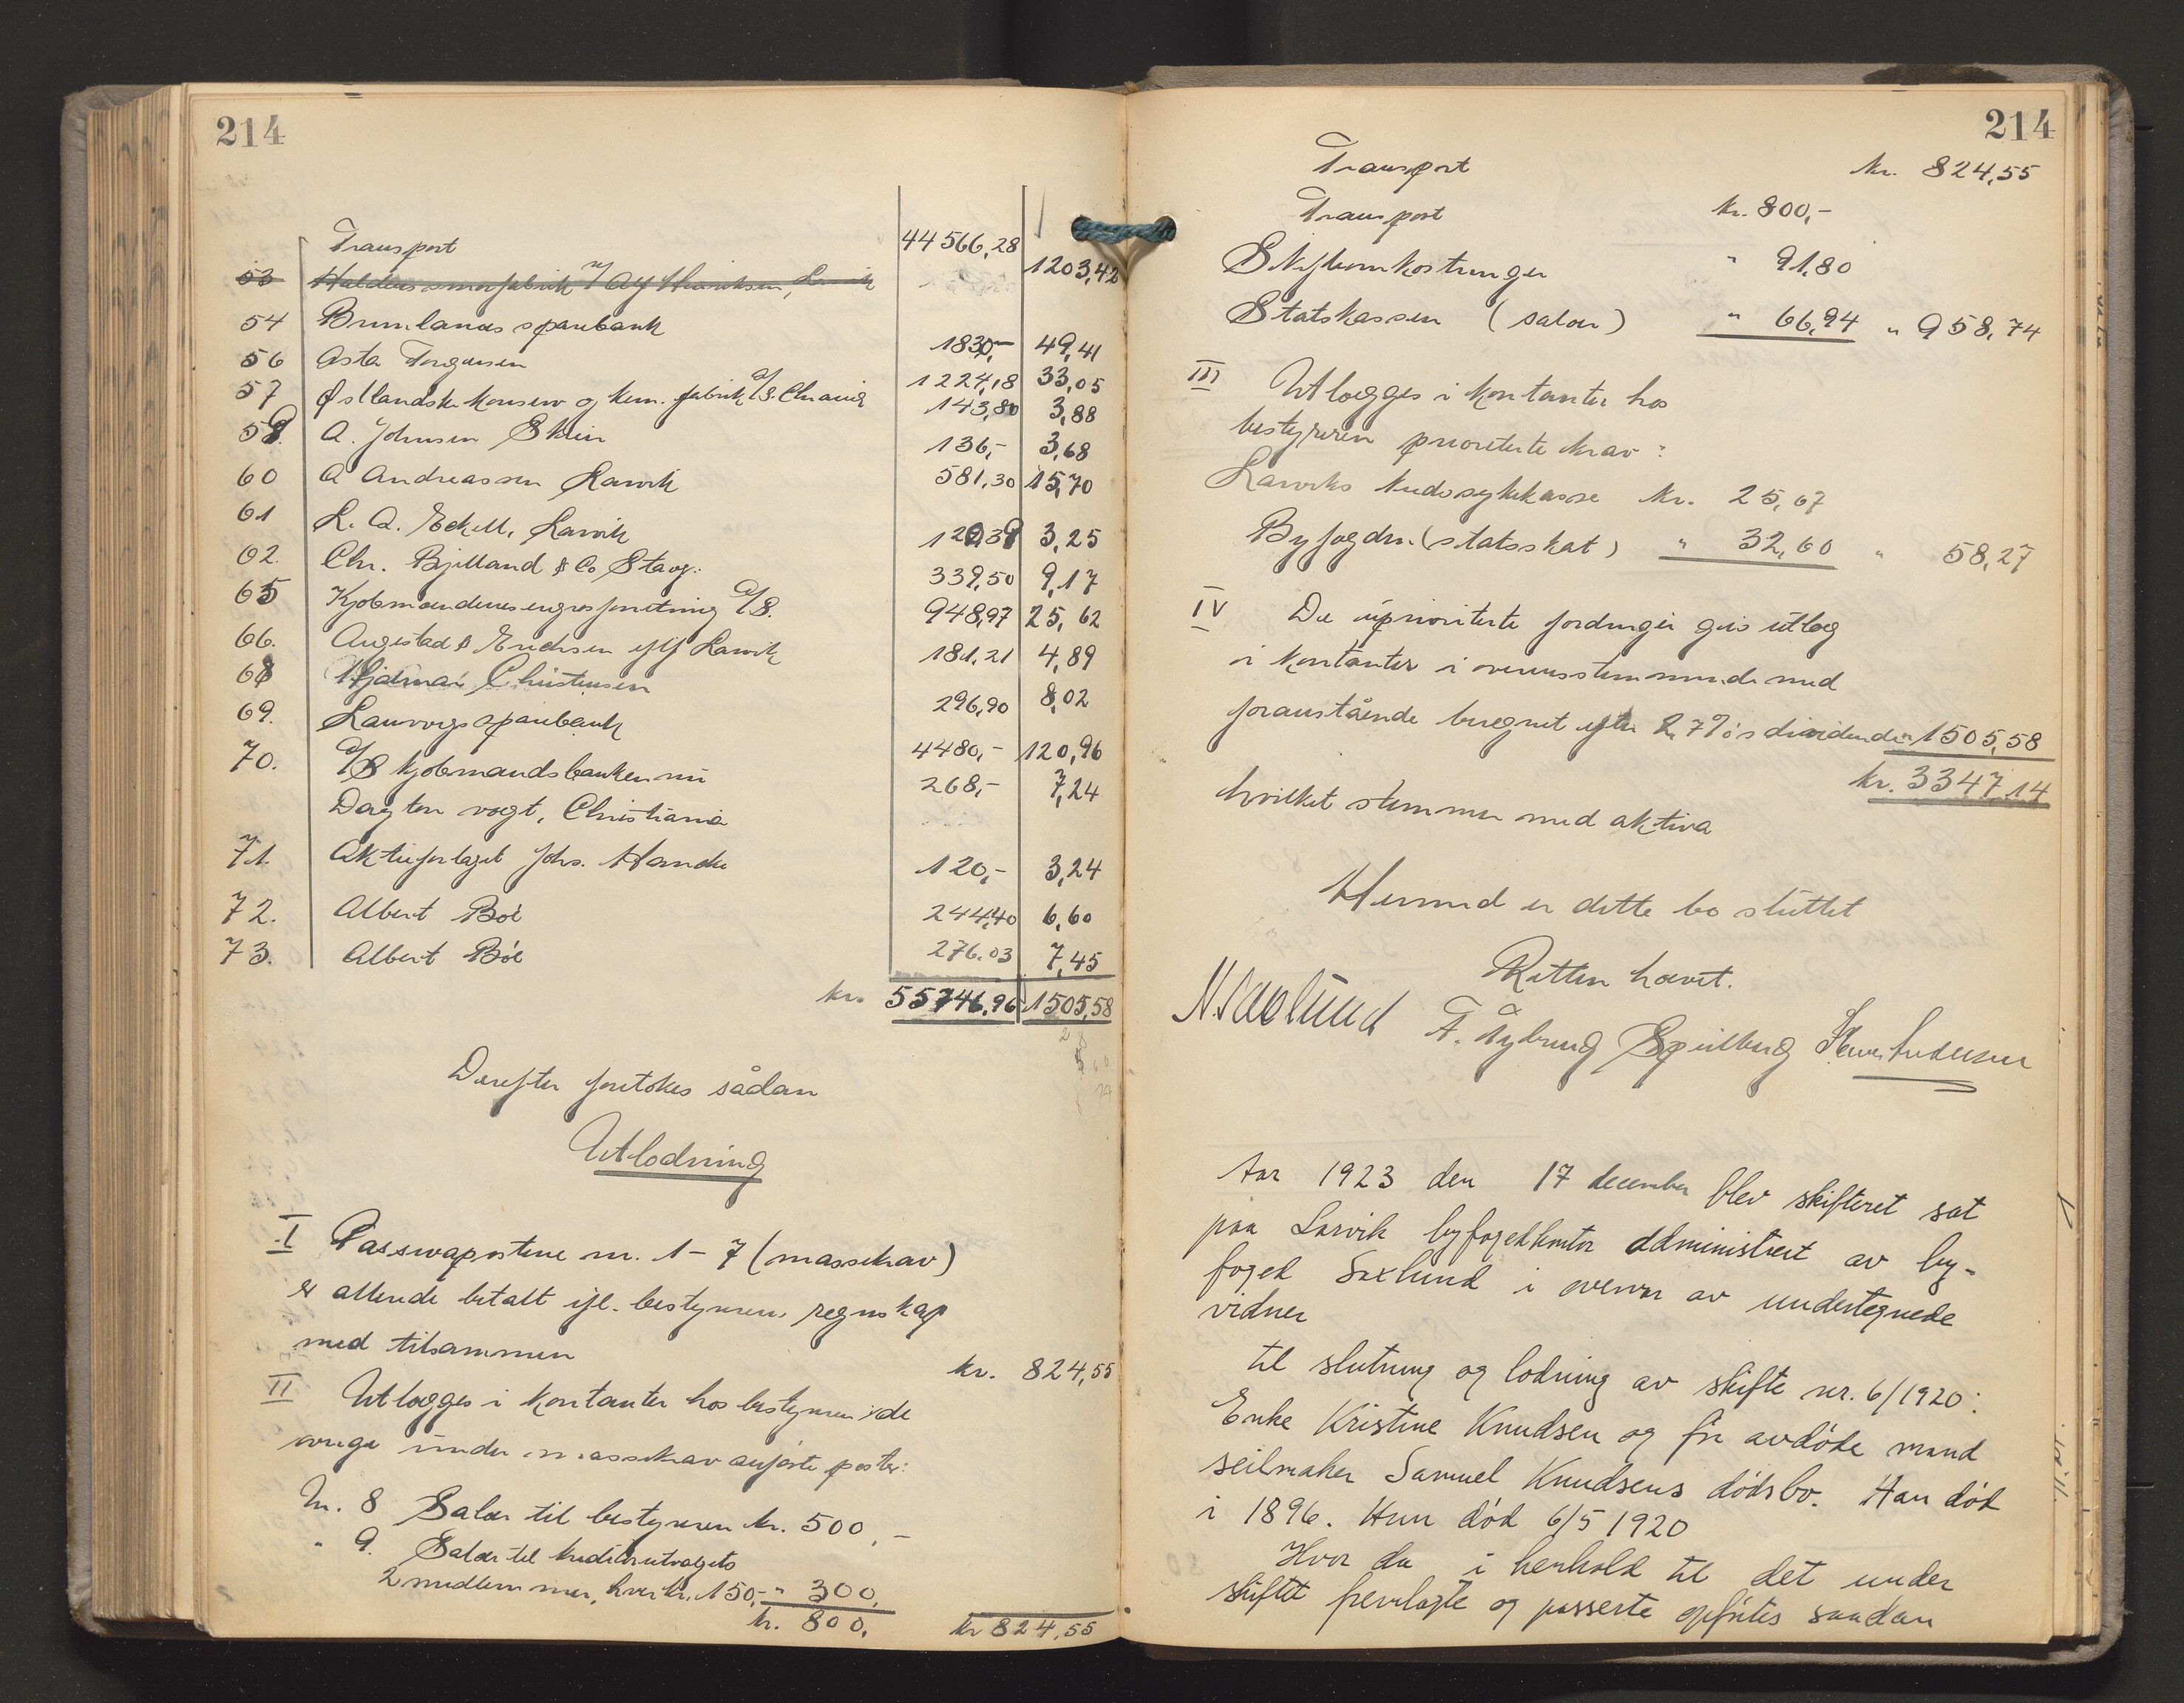 214
Transport 44566,28 1203,42
53 Haldens smørfabrik v/ Alf Henriksen, Larvik
54 Brunlanæs sparebank 1830,- 49,41
56 Asta Torgersen 1224,18 33,05
57 Østlandske konserv og kem. fabrik A/S. Chrania 143,80 3,88
58. A. Johnsen Skien 136,- 3,68
60 A Andreassen Larvik 581,30 15,70
61 L. A. Larvik 120,39 3,25
62. Chr. Bjelland & Co Stavg. 339,50 9,17
65 Kjøbmændenes engrosforretning A/S. 948,97 25,62
66. Augestad & Erichsen eftf Larvik 181,21 4,89
68 Hjalmar Christensen 296,90 8,02
69. Laurvigs sparebank 4480,- 120,96
70. A/S Kjøbmandsbanken nu 268,- 7,24
Dag ten Christiania
71. Aktieforlaget Johs. Hande 120,- 3,24
72. Albert Bøe 244,40 6,60
73. Albert Bøe 276.03 7,45
kr. 55746,96 1505,58
Derefter foretokes sådan
Utlodning
I Passivapostene nr. 1-7 (massekrav)
er allerede betalt ifl. bestyreren, regnskap
med tilsammen kr. 824,55
II Utlægges i kontanter hos bestyreren de
øvrige under massekrav anførte poster:
Nr. 8 Salær til bestyreren kr. 500,-
" 9. Salær til kreditorutvalgets
2 medlemmer, hver kr. 150,- " 300,
kr. 800, kr 824,55
214
Transport kr. 824,55
Transport kr. 800,-
Skifteomkostninger " 91,80
Statskassen (salær) " 66,94 " 958,74
III Utlægges i kontanter hos
bestyreren prioriterte krav:
Larviks kredssykekasse kr. 25,67
Byfogden (statsskat) " 32,60 " 58,27
IV De uprioriterte fordringer gis utlæg
i kontanter i overensstemmende med
foranstående beregnet efter 2,7% s dividende " 1505,58
kr. 3347,14
hvilket stemmer med aktiva
Hermed er dette bo sluttet
Retten hævet.
N. Saxlund F. Nyborg Spielberg Andersen
Aar 1923 den 17 december blev skifteret sat
paa Larvik byfogedkontor administrert av by-
foged Saxlund i overvær av undertegnede
vidner
til slutning og lodning av skifte nr. 6/1920:
Enke Kristine Knudsen og før avdøde mand
seilmaker Samuel Knudsens dødsbo. Han død
i 1896. Hun død 6/5 1920
Hvor da i henhold til det under
skiftet fremlagte og passerte opførtes saadan